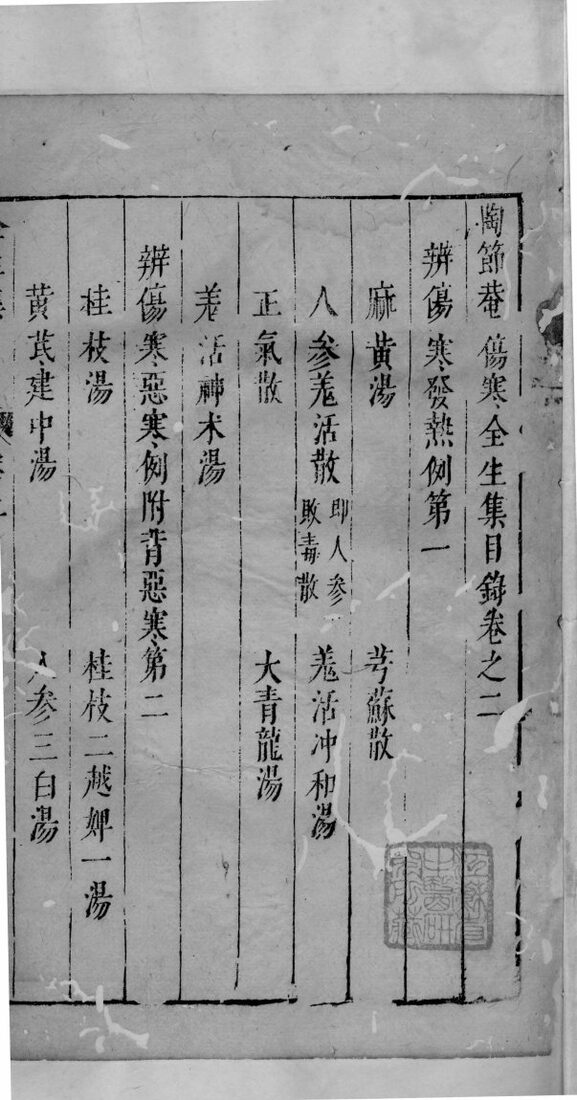 陶節菴傷寒全生集目錄卷之二
辨傷寒發熱例第一
麻黃湯 芎蘇散
人參羗活散 即人參敗毒散 羗活冲和湯
正氣散 大青龍湯
羗活神术湯
辨傷寒惡寒例附背惡寒第二
桂枝湯 桂枝二越婢一湯
黃芪建中湯 人參三白湯
江蘇省中醫研究所藏